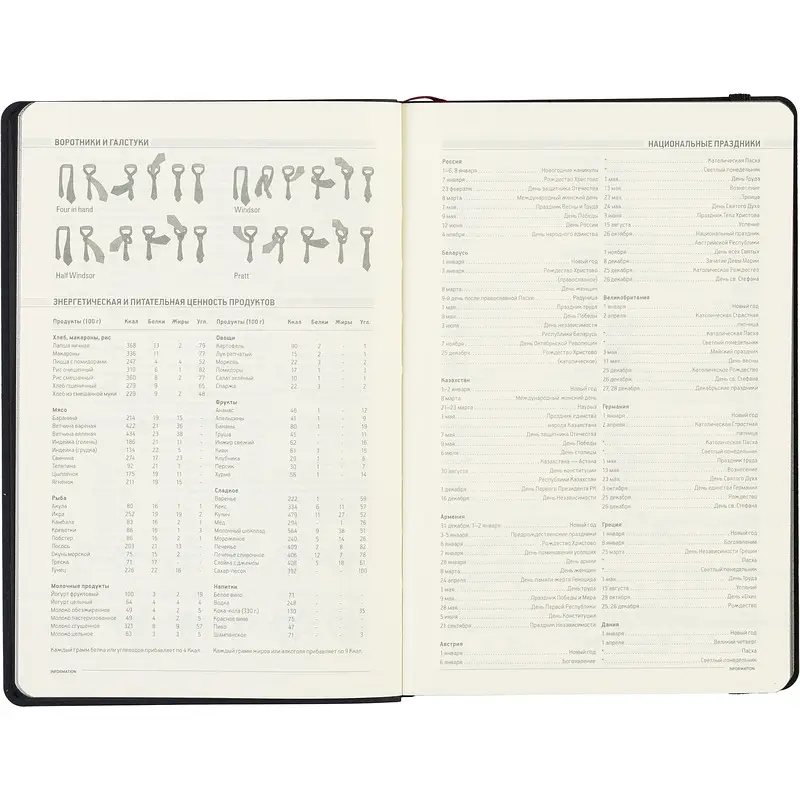 ВОРОТНИКИ И ГАЛСТУКИ
Four in hand
Windsor
Half Windsor
Pratt
ЭНЕРГЕТИЧЕСКАЯ И ПИТАТЕЛЬНАЯ ЦЕННОСТЬ ПРОДУКТОВ
Продукты (100 г) Ккал Белки Жиры Угл.
Хлеб, макароны, рис
Лапша яичная 368 13 2 79
Макароны 336 11 - 77
Пицца с помидорами 247 4 4 52
Рис очищенный 310 6 1 82
Рис смешанный 360 8 2 77
Хлеб пшеничный 279 9 - 65
Хлеб из смешанной муки 229 9 2 48
Мясо
Баранина 214 19 15 -
Ветчина вареная 422 21 36 -
Ветчина вяленая 434 23 38 -
Индейка (голень) 186 21 11 -
Индейка (грудка) 134 22 5 -
Свинина 274 17 23 -
Телятина 92 21 1 -
Цыпленок 175 19 11 -
Ягнёнок 211 19 15 -
Рыба
Акула 80 16 1 1
Икра 252 19 19 2
Камбала 83 16 2 1
Креветки 86 16 1 3
Лобстер 86 16 2 1
Лосось 203 21 13 -
Окунь морской 75 15 2 -
Треска 71 17 - -
Тунец 226 22 16 -
Молочные продукты
Йогурт фруктовый 100 3 2 19
Йогурт цельный 64 4 4 4
Молоко обезжиренное 49 4 2 5
Молоко пастеризованное 49 4 2 5
Молоко сгущенное 323 8 9 57
Молоко цельное 63 3 3 5
Каждый грамм белка или углеводов прибавляет по 4 Ккал.
INFORMATION
Продукты (100 г) Ккал Белки Жиры Угл.
Овощи
Картофель
Лук репчатый 15 2 - 1
Морковь
Помидоры 17 1 - 3
Салат зеленый 10 1 - 1
Спаржа 22 3 - 2
Фрукты
Ананас
Апельсины
Бананы
Груша
Инжир свежий
Киви
Клубника
Персик
Хурма
Сладкое
Варенье 222 1 - 59
Кекс 334 6 11 57
Кулич
Мёд
Молочный шоколад 564 9 38 51
Мороженое 240 5 14 26
Печенье 409 7 8 82
Печенье сливочное 406 12 7 76
Слойка с джемом 408 5 18 61
Сахар-песок 392 - - 100
Напитки
Белое вино 71
Водка 248
Кока-кола
Красное вино 75
Пиво 47
Шампанское 71 - - 3
Каждый грамм жиров или алкоголя прибавляет по 9 Ккал.
НАЦИОНАЛЬНЫЕ ПРАЗДНИКИ
Россия
1–6, 8 января Новогодние каникулы
7 января Рождество Христово
23 февраля День защитника Отечества
8 марта Международный женский день
1 мая Праздник Весны и Труда
9 мая День Победы
12 июня День России
4 ноября День народного единства
Беларусь
1 января Новый год
Рождество Христово
(православное)
8 марта День женщин
9-й день после православной Пасхи Радуница
1 мая Праздник труда
9 мая День Победы
3 июля День независимости
Республики Беларусь
7 ноября День Октябрьской Революции
25 декабря Рождество Христово
(католическое)
Казахстан
1–2 января Новый год
8 марта Международный женский день
21–23 марта Наурыз
1 мая Праздник единства
народа Казахстана
7 мая День защитника Отечества
9 мая День Победы
6 июля День столицы
Казахстана — Астана
День конституции
Республики Казахстан
1 декабря День Первого Президента РК
16 декабря День Независимости
Армения
31 декабря, 1–2 января Новый год
3–5 января Предрождественские праздники
6 января Рождество Христово
7 января День поминовения усопших
28 января День армии
8 марта День женщин
24 апреля День памяти жертв Геноцида
1 мая День труда
9 мая Праздник Победы и Мира
28 мая День Первой Республики
5 июля День Конституции
21 сентября Праздник Независимости
Австрия
1 января Новый год
6 января Богоявление
* Католическая Пасха
* Светлый понедельник
1 мая День Труда
13 мая Вознесение
23 мая Троица
24 мая День Святого Духа
3 июня Праздник Тела Христова
15 августа Успение
26 октября Национальный праздник
Австрийской Республики
1 ноября День всех Святых
8 декабря Зачатие Девы Марии
25 декабря Католическое Рождество
26 декабря День св. Стефана
Великобритания
1 января Новый год
2 апреля Католическая Страстная
пятница
* Католическая Пасха
* Светлый понедельник
3 мая Майский праздник
31 мая День весны
25 декабря Католическое Рождество
26 декабря День св. Стефана
27, 28 декабря Декабрьские праздники
Германия
1 января Новый год
2 апреля Католическая Страстная
пятница
* Католическая Пасха
* Светлый понедельник
1 мая Праздник труда
13 мая Вознесение
23 мая День Святого Духа
3 октября День единства Германии
25 декабря Рождество
26 декабря День св. Стефана
Греция
1 января Новый год
6 января Богоявление
25 марта День Независимости Греции
* Пасха
* Светлый понедельник
1 мая День труда
15 августа Успение
28 октября День «Охи»
25, 26 декабря Рождество
Дания
1 января Новый год
1 апреля Великий четверг
* Пасха
* Светлый понедельник
INFORMATION